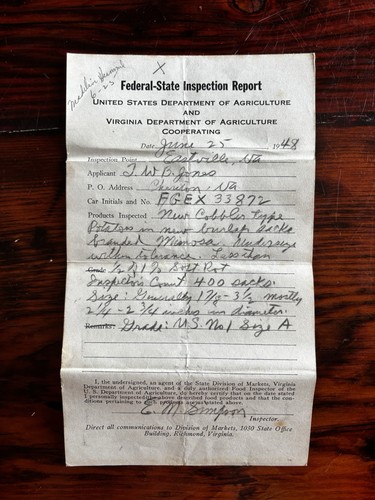 X
6-25
Federal-State Inspection Report
UNITED STATES DEPARTMENT OF AGRICULTURE
AND
VIRGINIA DEPARTMENT OF AGRICULTURE
COOPERATING
Date June 25 1948
Inspection Point Eastville, Va
Applicant T. W. B. Jones
P. O. Address Cheriton, Va
Car Initials and No. FGEX 33872
Products Inspected New Cobbler Type
Potatoes in new burlap sacks
branded Mimosa. Undersize
within tolerance. Less than
1/2 of 1% Soft Rot
Inspectors Count 400 sacks.
Size: Generally 1 7/8 - 3 1/2 mostly
2 1/4 - 2 3/4 inches in diameter.
Remarks: Grade: U.S. No 1 Size A
I, the undersigned, an agent of the State Division of Markets, Virginia
Department of Agriculture, and a duly authorized Food Inspector of the
U. S. Department of Agriculture, do hereby certify that on the date stated
I personally inspected the above described food products and that the con-
ditions pertaining to such products are as stated above.
E. M. Simpson
Inspector.
Direct all communications to Division of Markets, 1030 State Office
Building, Richmond, Virginia.